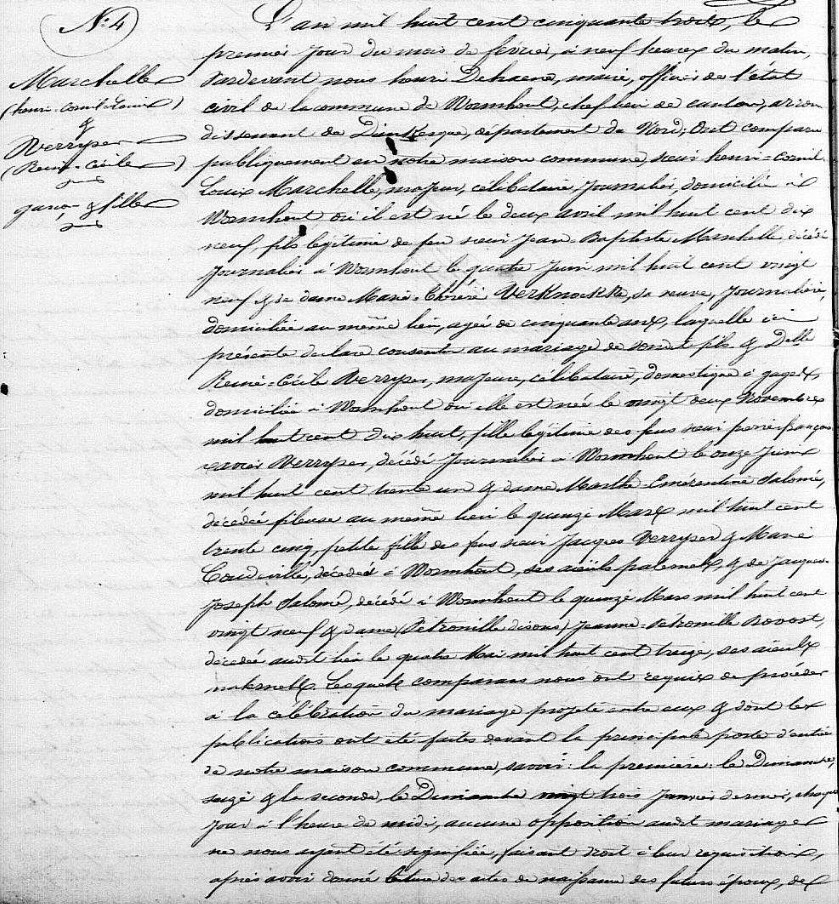 N° 4
Marchelle
(henri-cornil-Louis)
&
Verryser
(Reine-Cécile)
garçon & fille
L'an mil huit cent cinquante trois, le
premier jour du mois de février, à neuf heures du matin,
Pardevant nous henri Dehaene, maire, officier de l'état
civil de la commune de Wormhout, chef lieu de canton, arron
dissement de Dunkerque, département du Nord; Ont comparu
publiquement en notre maison commune, sieur henri-cornil-
Louis Marchelle, majeur, célibataire, Journalier, domicilié à
Wormhout, où il est né le deux avril mil huit cent dix
neuf, fils légitime de feu sieur Jean-Baptiste Marchelle, décédé
Journalier à Wormhout le quatre Juin mil huit cent vingt
neuf & de dame Marie-Thérèse Verknockke, sa veuve, Journalière,
domiciliée au même lieu, agée de cinquante six, laquelle ici
présente declare consentir au mariage de son dit fils & Delle
Reine-Cécile Verryser, majeure, célibataire, domestique à gages,
domiciliée à Wormhout où elle est née le vingt deux Novembre
mil huit cent dix huit, fille légitime des feus sieur pierre françois
xavier Verryser, décédé Journalier à Wormhout le onze Juin
mil huit cent trente un & dame Marthe-Emérentine Salomé,
décédée fileuse au même lieu le quinze Mars mil huit cent
trente cinq, petite fille des feus sieur Jacques Verryser & Marie
décédés à Wormhout, ses aïeuls paternels & de Jacques-
Joseph Salomé, décédé à Wormhout le quinze Mars mil huit cent
vingt neuf & dame (Pétronille disons) Jeanne-Pétronille Bovost,
décédée audit lieu le quatre Mai mil huit cent treize, ses aïeuls
maternels. Lesquels comparans nous ont requis de procéder
à la célébration du mariage projeté entre eux & dont les
publications ont été faites devant la principale porte d'entrée
de notre maison commune, savoir: la première: le Dimanche,
seize & la seconde, le Dimanche vingt trois Janvier dernier, chaque
jour à l'heure de midi, aucune opposition audit mariage
ne nous ayant été signifiée, faisant droit à leur requisition,
après avoir donné lecture des actes de naissance des futurs époux, des